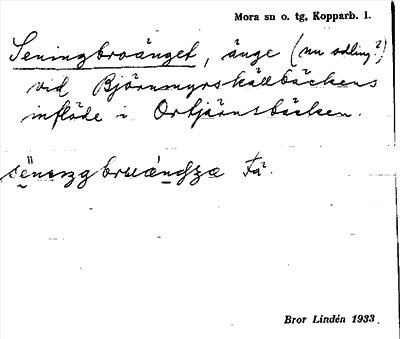 Mora sn o. tg, Kopparb. l.
Seningbroänget, änge (nu odling?)
vid Björnmyrskällbäckens
inflöde i Ortjärnsbäcken.
Bror Lindén 1933.